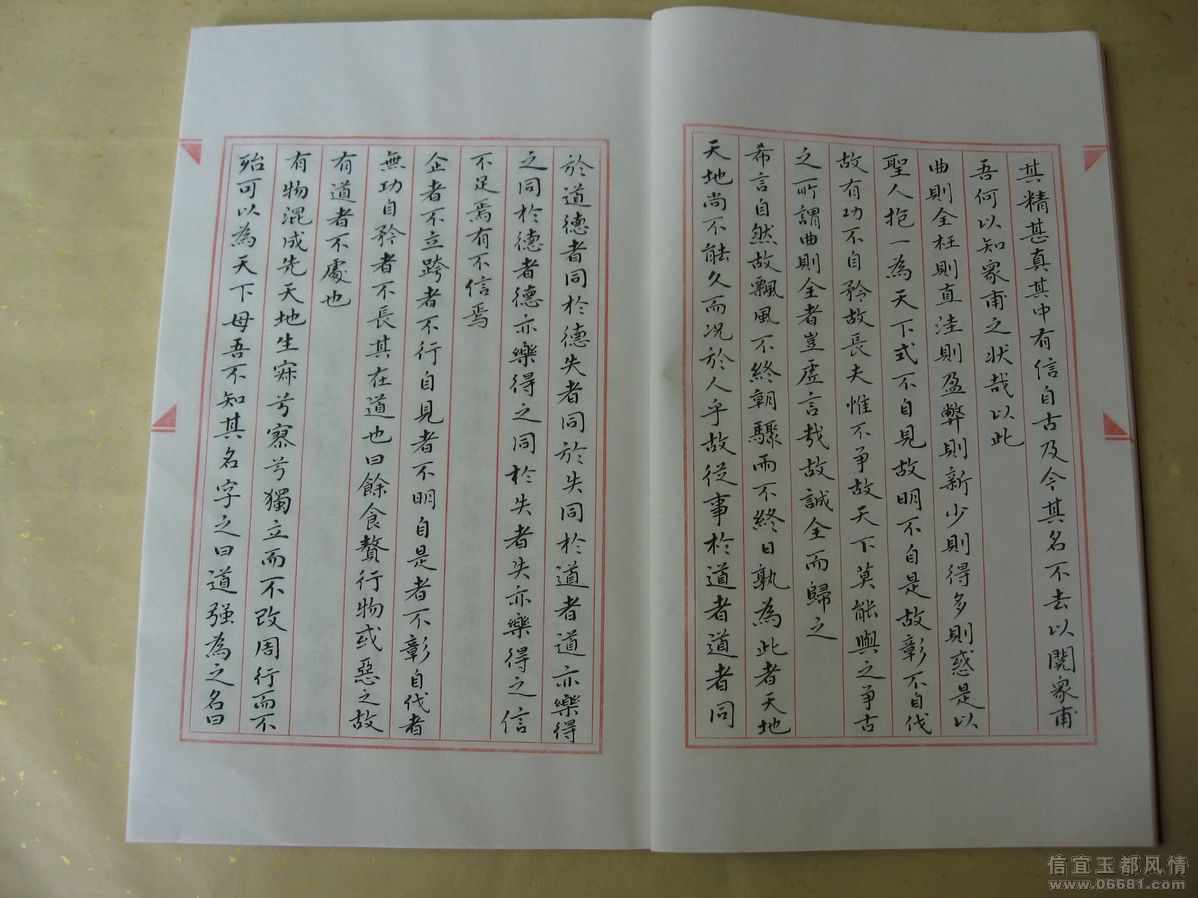 其精甚真其中有信自古及今其名不去以閱衆甫
吾何以知衆甫之状哉以此
曲則全枉則直洼則盈弊則新少則得多則惑是以
聖人抱一為天下式不自見故明不自是故彰不自伐
故有功不自矜故長夫惟不争故天下莫能與之争古
之所謂曲則全者豈虚言哉故誠全而歸之
希言自然故飄風不終朝驟雨不終日孰為此者天地
天地尚不能久而况於人乎故從事於道者道者同
於道德者同於德失者同於失同於道者道亦樂得
之同於德者德亦樂得之同於失者失亦樂得之信
不足焉有不信焉
企者不立跨者不行自見者不明自是者不彰自伐者
無功自矜者不長其在道也曰餘食贅行物或惡之故
有道者不處也
有物混成先天地生寂兮寥兮獨立而不改周行而不
殆可以為天下母吾不知其名字之曰道强為之名曰
信宜玉都风情
www.06681.com